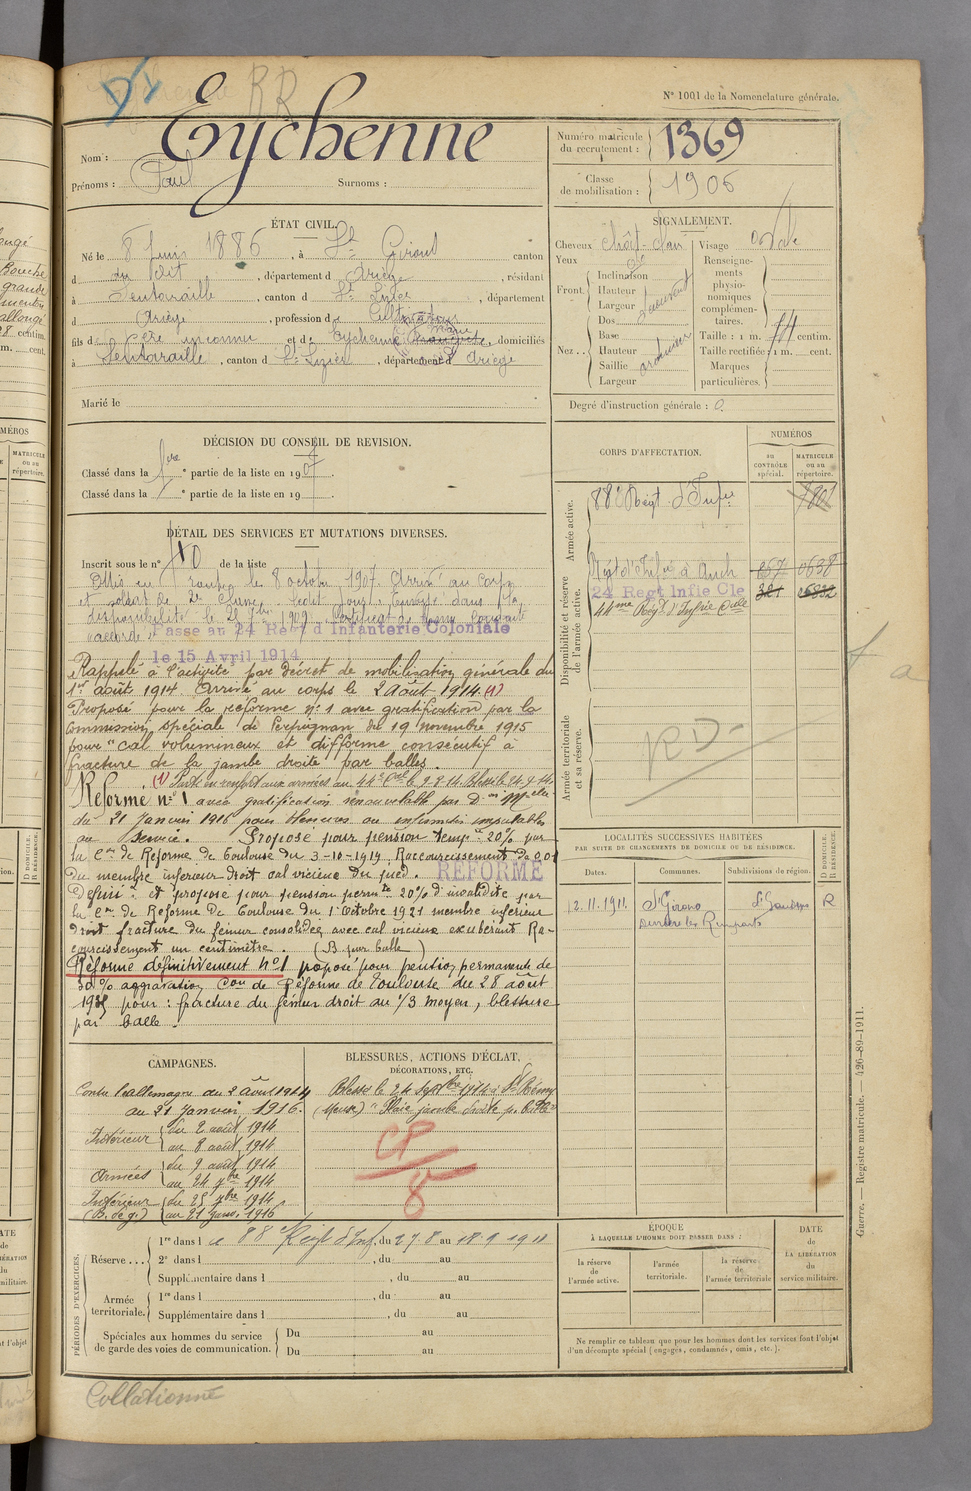 RR
N° 1001 de la Nomenclature générale.
Nom : Eychenne
Prénoms : Paul Surnoms :
Numéro matricule du recrutement : 1369
Classe de mobilisation : 1906
ÉTAT CIVIL.
Né le 8 Juin 1886, à St Girons canton
d du dit, département d Ariège, résidant
à Lentaraille, canton d St Lizier, département
d Ariège, profession d Cultivateur
fils d Père inconnu et d Eychenne, domiciliés
à Lentaraille, canton d St Lizier, département d Ariège
Marié le
SIGNALEMENT.
Cheveux Chât-clair Visage Ovale
Yeux
Front. Inclinaison
Hauteur
Largeur
Nez.. Dos
Base
Hauteur
Saillie
Largeur
Renseignements physionomiques complémentaires.
Taille : 1 m. centim.
Taille rectifiée : 1 m. cent.
Marques particulières.
Degré d'instruction générale : 0
DÉCISION DU CONSEIL DE REVISION.
Classé dans la 1re partie de la liste en 1907
Classé dans la e partie de la liste en 19
CORPS D'AFFECTATION.
NUMÉROS
AU CONTRÔLE spécial.
MATRICULE ou au répertoire.
Armée active.
88e Régt d'Infie
Disponibilité et réserve de l'armée active.
Régt d'Infie à Auch
24 Regt Infie Cle
44me Régt d'Infrie Cole
Armée territoriale et sa réserve.
RD
DÉTAIL DES SERVICES ET MUTATIONS DIVERSES.
Inscrit sous le n° 40 de la liste
le 8 octobre 1907. Arrivé au corps
et soldat de 2e classe ledit jour. Envoyé dans la
disponibilité le 1909. Certificat de bonne conduite
accordé
Passé au 24 Regt d'Infanterie Coloniale
le 15 Avril 1914
Rappelé à l'activité par décret de mobilisation générale du
1er août 1914 Arrivé au corps le 2 Août 1914. (1)
Proposé pour la réforme n° 1 avec gratification par la
Commission spéciale de Perpignan du 19 novembre 1915
pour "cal volumineux et difforme consécutif à
fracture de la jambe droite par balles.
(1) Parti en renfort aux armées au 44e Cal le 9-8-14 Blessé le 24-9-14.
Réformé n° 1 avec gratification renouvelable par Don Melle
du 21 Janvier 1916 pour blessures ou infirmités imputables
au service. Proposé pour pension temp. 20% par
la Con de Réforme de Toulouse du 3-10-1919. Raccourcissement de 0.01
du membre inférieur droit cal vicieux du fémur.
RÉFORMÉ
Définive et proposé pour pension permte 20% d'invalidité par
la Con de Réforme de Toulouse du 1er Octobre 1921 membre inférieur
droit fracture du fémur consolidée avec cal vicieux exubérant. Re-
courcissement un centimètre. (B. par balle)
Réformé définitivement n° 1 proposé pour pension permanente de
30% aggravation Con de Réforme de Toulouse du 28 août
pour : fracture du fémur droit au 1/3 moyen, blessure
par balle.
LOCALITÉS SUCCESSIVES HABITÉES
PAR SUITE DE CHANGEMENTS DE DOMICILE OU DE RÉSIDENCE.
Dates. Communes. Subdivisions de région. D DOMICILE. R RÉSIDENCE.
12.11.1911. St Girons St Gaudens R
Derrière les Remparts
CAMPAGNES.
Contre l'allemagne du 2 août 1914
au 21 Janvier 1916.
Intérieur du 2 août 1914
au 8 août 1914
Armées du 9 août 1914
au 24 7bre 1914
Intérieur du 25 7bre 1914
(B. de g.) au 21 Janv. 1916
BLESSURES, ACTIONS D'ÉCLAT,
DÉCORATIONS, ETC.
Blessé le 24 Septbre 1914 à St Rémy
(Meuse) "Plaie jambe droite p. balle"
CP
8
PÉRIODES D'EXERCICES.
Réserve... 1re dans l e 88e Régt d'Inf., du 27-8 au 18-9 1911
2e dans l , du au
Supplémentaire dans l , du au
Armée territoriale. 1re dans l , du au
Supplémentaire dans l , du au
Spéciales aux hommes du service de garde des voies de communication. Du au
Du au
ÉPOQUE
À LAQUELLE L'HOMME DOIT PASSER DANS :
la réserve de l'armée active.
l'armée territoriale.
la réserve de l'armée territoriale
DATE DE LA LIBÉRATION du service militaire.
Ne remplir ce tableau que pour les hommes dont les services font l'objet
d'un décompte spécial (engagés, condamnés, omis, etc.).
Guerre. — Registre matricule. — 426-89-1911.
Collationné